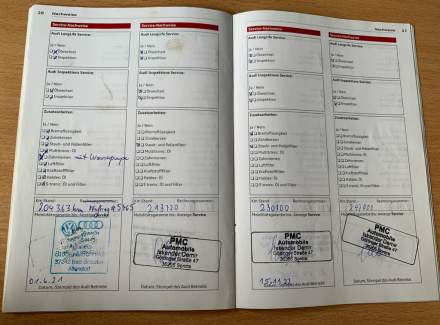 26 Nachweise
Service-Nachweise
Audi LongLife Service:
Ja / Nein
Ölwechsel
Inspektion
Audi Inspektions Service:
Ja / Nein
Ölwechsel
Inspektion
Zusatzarbeiten:
Ja / Nein
Bremsflüssigkeit
Zündkerzen
Staub- und Pollenfilter
Multitronic: Öl
Zahnriemen mit Wasserpumpe
Luftfilter
Kraftstofffilter
Haldex: Öl
S tronic: Öl und Filter
204363 km
Mobilitätsgarantie bis: Anzeige Service
01.6.21
Datum, Stempel des Audi Betriebs
Service-Nachweise
Audi LongLife Service:
Ja / Nein
Ölwechsel
Inspektion
Audi Inspektions Service:
Ja / Nein
Ölwechsel
Inspektion
Zusatzarbeiten:
Ja / Nein
Bremsflüssigkeit
Zündkerzen
Staub- und Pollenfilter
Multitronic: Öl
Zahnriemen
Luftfilter
Kraftstofffilter
Haldex: Öl
S tronic: Öl und Filter
Mobilitätsgarantie bis: Anzeige Service
PMC
Automobile
Iskender Demir
Datum, Stempel des Audi Betriebs
Service-Nachweise
Audi LongLife Service:
Ja / Nein
Ölwechsel
Inspektion
Audi Inspektions Service:
Ja / Nein
Ölwechsel
Inspektion
Zusatzarbeiten:
Ja / Nein
Bremsflüssigkeit
Zündkerzen
Staub- und Pollenfilter
Multitronic: Öl
Zahnriemen
Luftfilter
Kraftstofffilter
Haldex: Öl
S tronic: Öl und Filter
230900
Mobilitätsgarantie bis: Anzeige Service
PMC
Automobile
Iskender Demir
Datum, Stempel des Audi Betriebs
Nachweise 27
Service-Nachweise
Audi LongLife Service:
Ja / Nein
Ölwechsel
Inspektion
Audi Inspektions Service:
Ja / Nein
Ölwechsel
Inspektion
Zusatzarbeiten:
Ja / Nein
Bremsflüssigkeit
Zündkerzen
Staub- und Pollenfilter
Multitronic: Öl
Zahnriemen
Luftfilter
Kraftstofffilter
Haldex: Öl
S tronic: Öl und Filter
Mobilitätsgarantie bis: Anzeige Service
PMC
Automobile
Iskender Demir
Datum, Stempel des Audi Betriebs